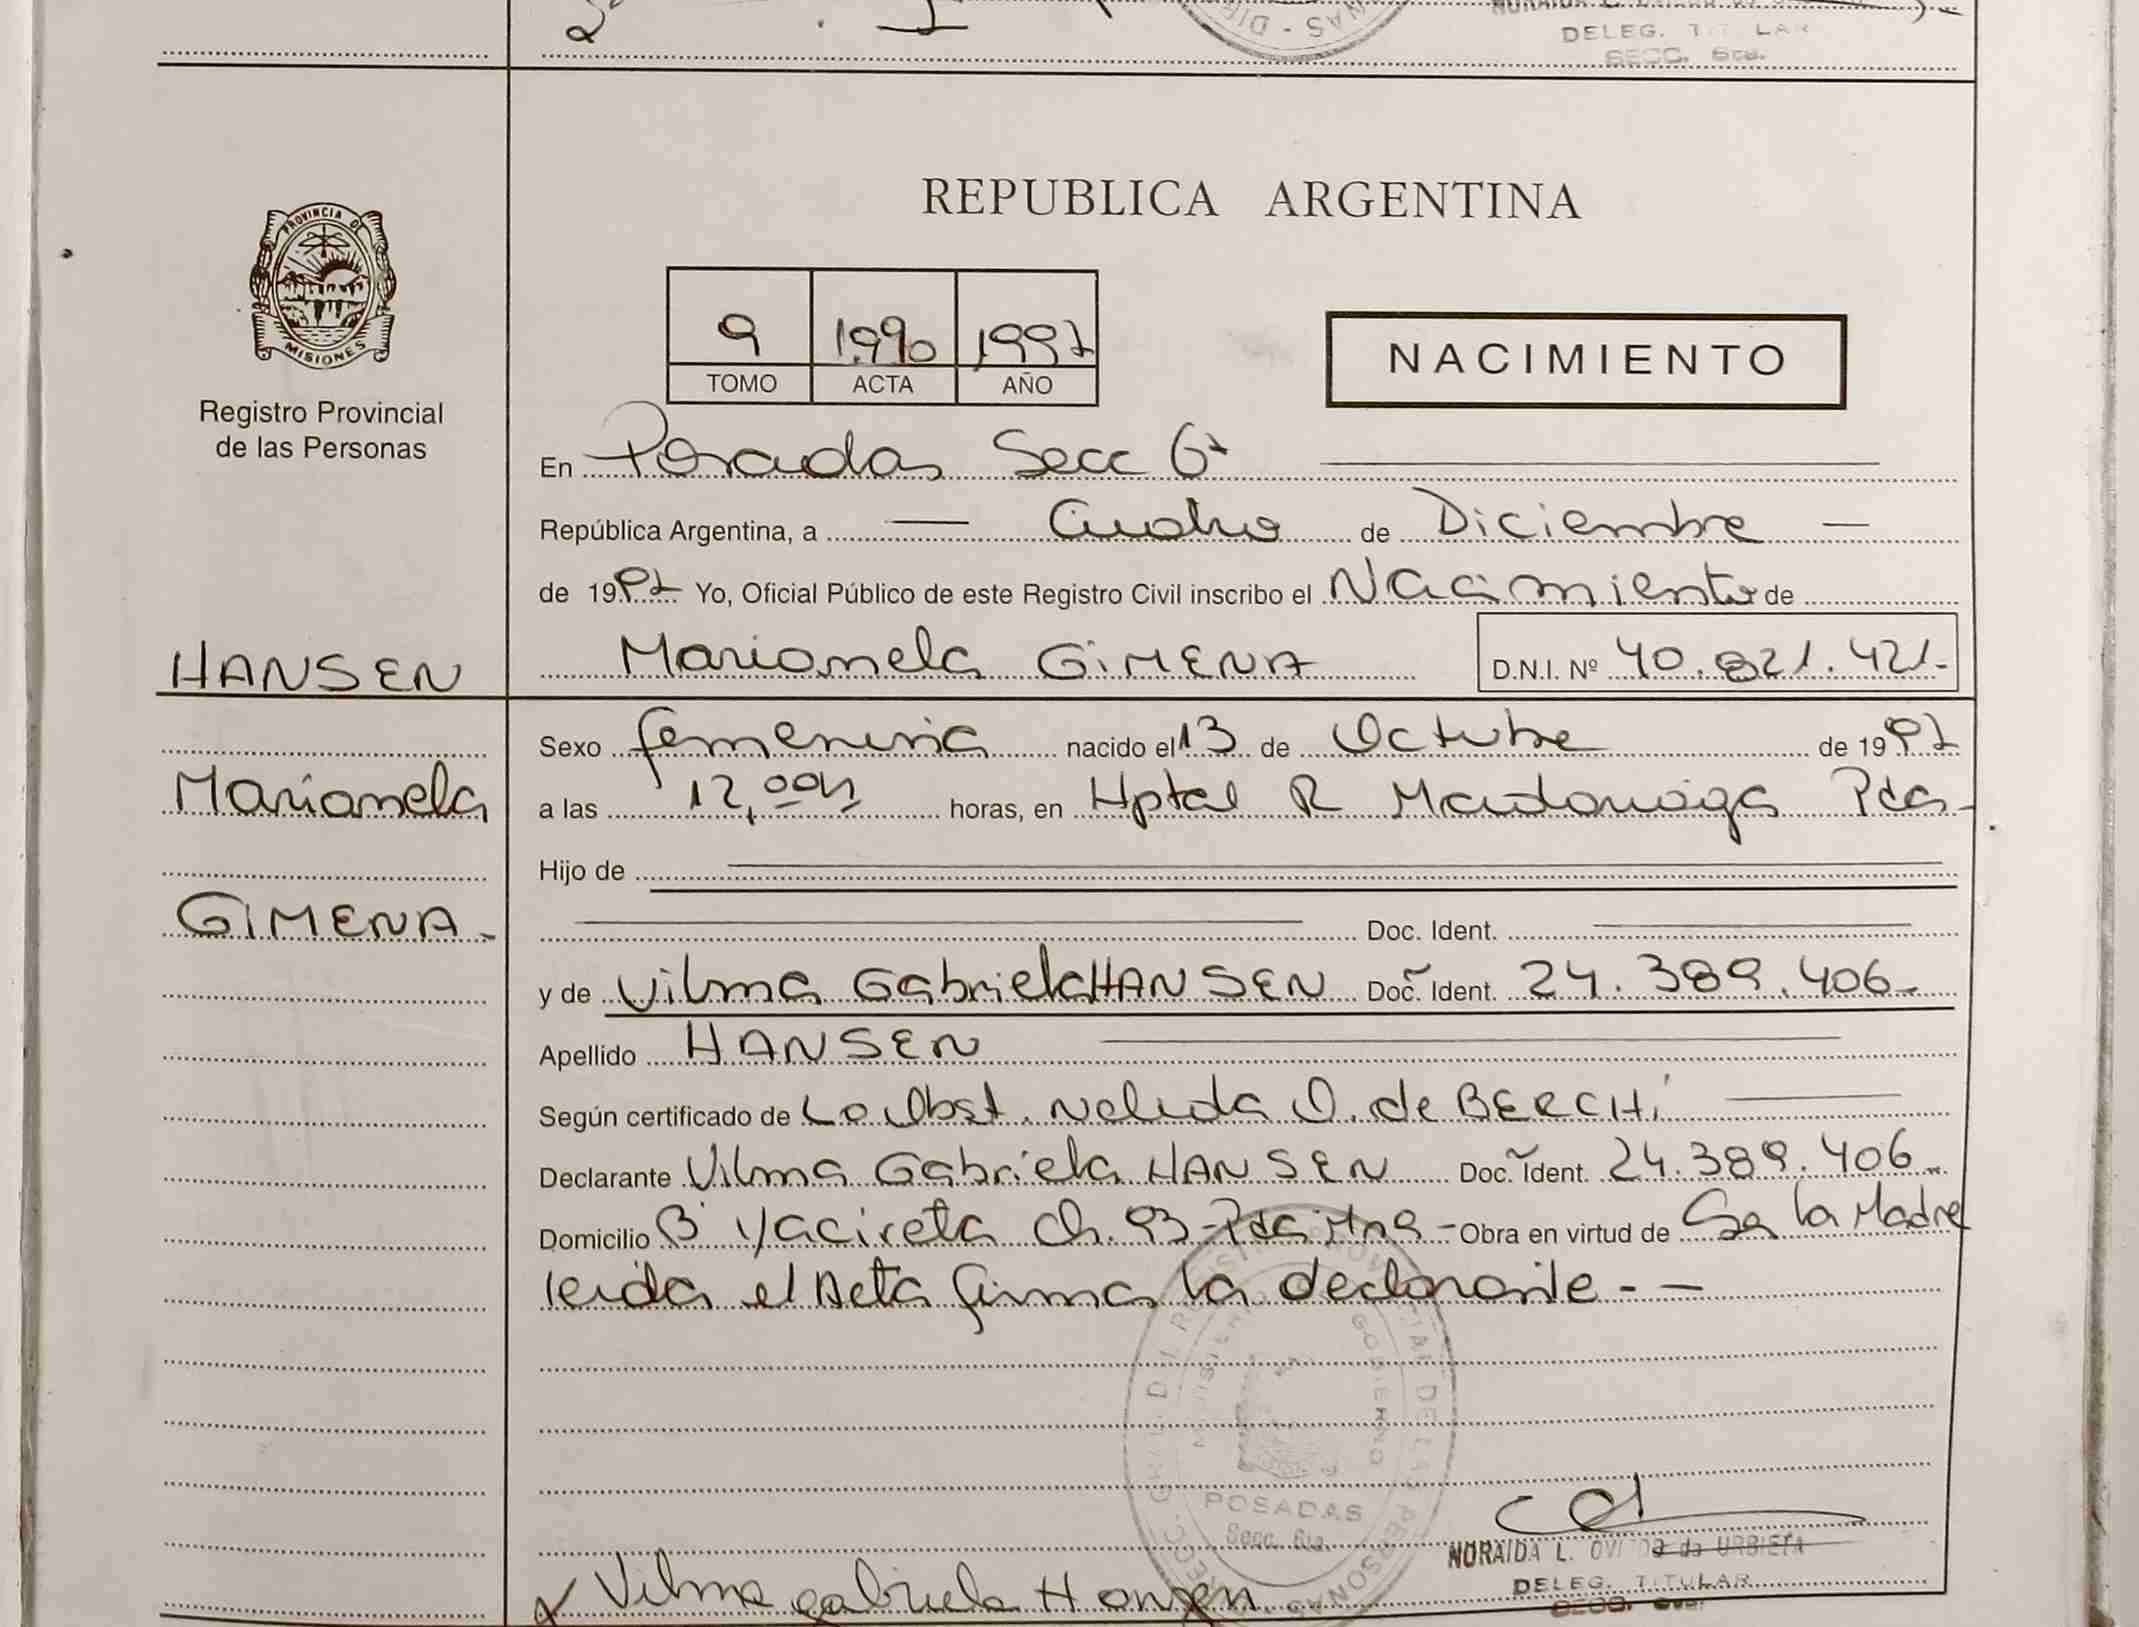 DELEG. TITULAR
SECC. 6ta.
REPUBLICA ARGENTINA
PROVINCIA DE
MISIONES
Registro Provincial
de las Personas
9 1990 1997
TOMO ACTA AÑO
NACIMIENTO
En Posadas Secc 6ta
República Argentina, a Cuatro de Diciembre
de 1997 Yo, Oficial Público de este Registro Civil inscribo el Nacimiento de
HANSEN Marianela GIMENA D.N.I. Nº 40.821.421.-
Sexo femenina nacido el 13 de Octubre de 1997
Marianela
a las 12,00h horas, en Hptal R Madariaga Pdas-
Hijo de
GIMENA.-
Doc. Ident.
y de Vilma Gabriela HANSEN Doc. Ident. 24.389.406.-
Apellido HANSEN
Según certificado de La Obst. Nelida O. de BERCHI
Declarante Vilma Gabriela HANSEN Doc. Ident. 24.389.406.-
Domicilio Bº Yacireta Ch. 93-Pdas Mnes- Obra en virtud de Ser la Madre
leida el Acta firma la declarante.- -
MINISTERIO GOBIERNO
POSADAS
Secc. 6ta.
NORAIDA L. OVIEDO de URBIETA
DELEG. TITULAR
SECC. 6ta.
Vilma gabriela Hansen